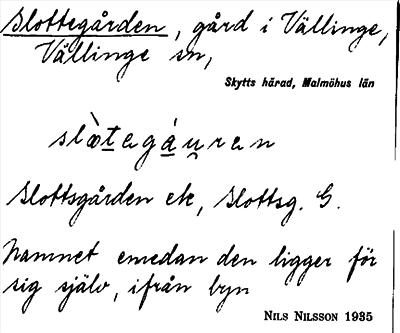 Slottegården, gård i Vällinge,
Vällinge sn,
Skytts härad, Malmöhus län
slæ̀tegáu̯ren
Slottsgården ek, Slottsg. G.
Namnet emedan den ligger för
sig själv, ifrån byn
NILS NILSSON 1935